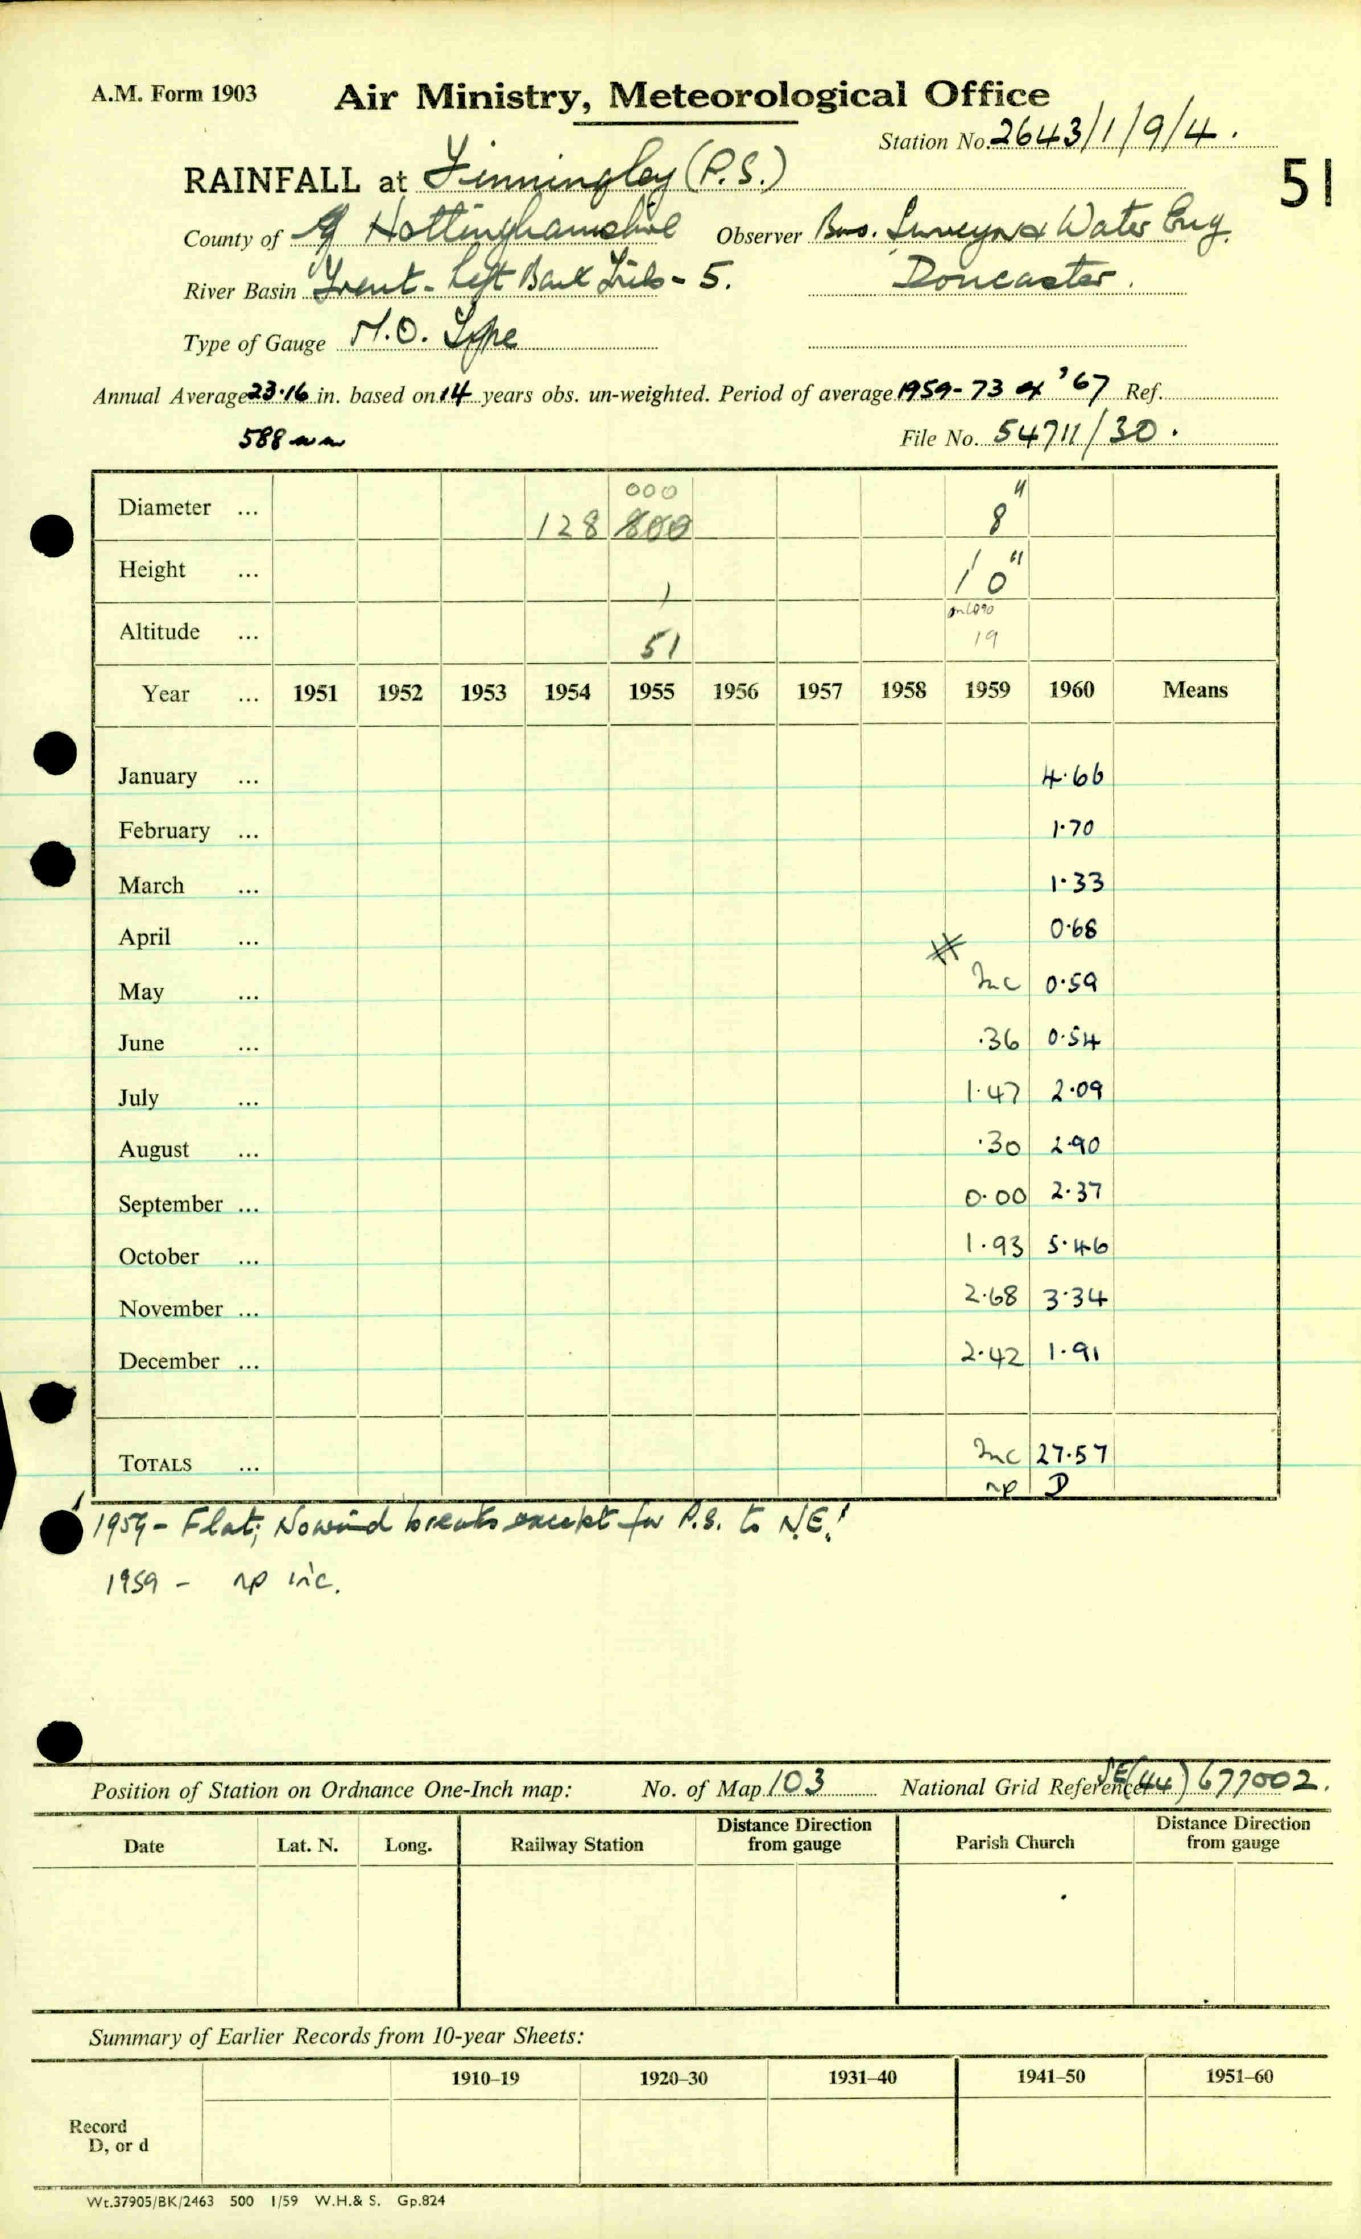 A.M. Form 1903 Air Ministry, Meteorological Office
Station No. 2643/1/9/4.
RAINFALL at Finningley (P.S.) 51
County of Nottinghamshire Observer Boro. Surveyor & Water Eng.
River Basin Trent - Left Bank Tribs - 5. Doncaster.
Type of Gauge M.O. Type
Annual Average 23.16 in. based on 14 years obs. un-weighted. Period of average 1959-73 '67 Ref.
588 mm File No. 54711/30.
000
Diameter ... 128 800 8"
Height ... 1 1' 0"
Altitude ... 51 19
Year ... 1951 1952 1953 1954 1955 1956 1957 1958 1959 1960 Means
January ... 4.66
February ... 1.70
March ... 1.33
April ... 0.68
May ... Inc 0.59
June ... .36 0.54
July ... 1.47 2.09
August ... .30 2.90
September ... 0.00 2.37
October ... 1.93 5.46
November ... 2.68 3.34
December ... 2.42 1.91
TOTALS ... Inc 27.57
np D
1959 - Flat; No wind breaks except for P.S. to N.E.
1959 - np inc.
Position of Station on Ordnance One-Inch map: No. of Map 103 National Grid Reference SE(44) 677002.
Date Lat. N. Long. Railway Station Distance Direction from gauge Parish Church Distance Direction from gauge
Summary of Earlier Records from 10-year Sheets:
1910–19 1920–30 1931–40 1941–50 1951–60
Record
D, or d
Wt.37905/BK/2463 500 1/59 W.H.& S. Gp.824